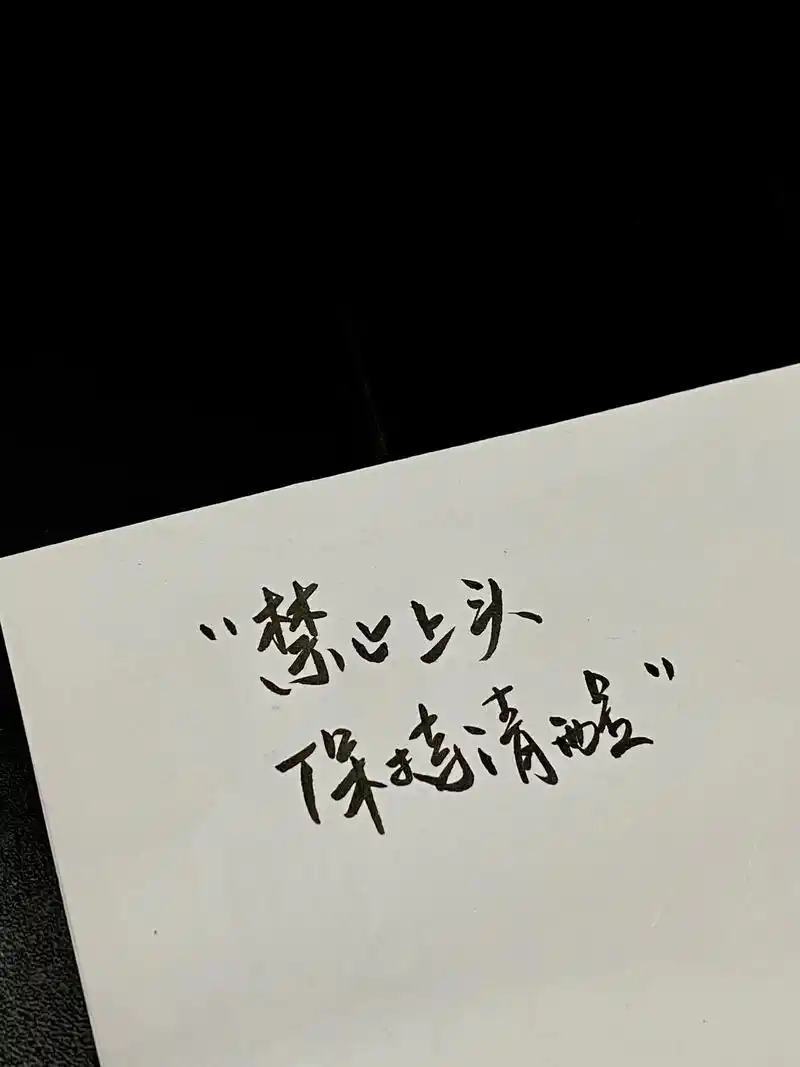 “禁止上头
保持清醒”